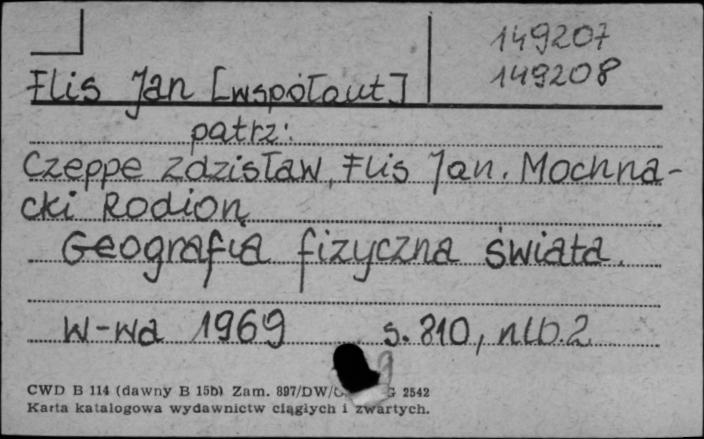 149207
149208
Flis Jan [współaut]
patrz:
Czeppe Zdzisław, Flis Jan. Mochna-
cki Rodion
Geografia fizyczna świata.
W-wa 1969 s. 810, nlb. 2
CWD B 114 (dawny B 15b) Zam. 897/DW/ G 2542
Karta katalogowa wydawnictw ciągłych i zwartych.